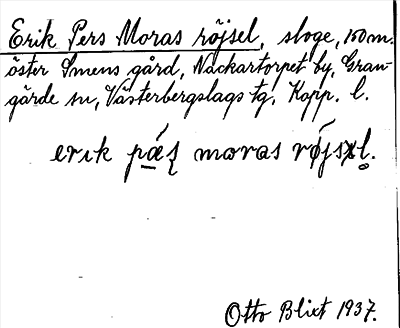 Erik Pers Moras röjsel, sloge, 150 m.
öster Smens gård, Nackartorpet by, Gran-
gärde sn, Västerbergslags tg, Kopp. l.
erik pǽʂ moras rǿjsəl̥.
Otto Blixt 1937.